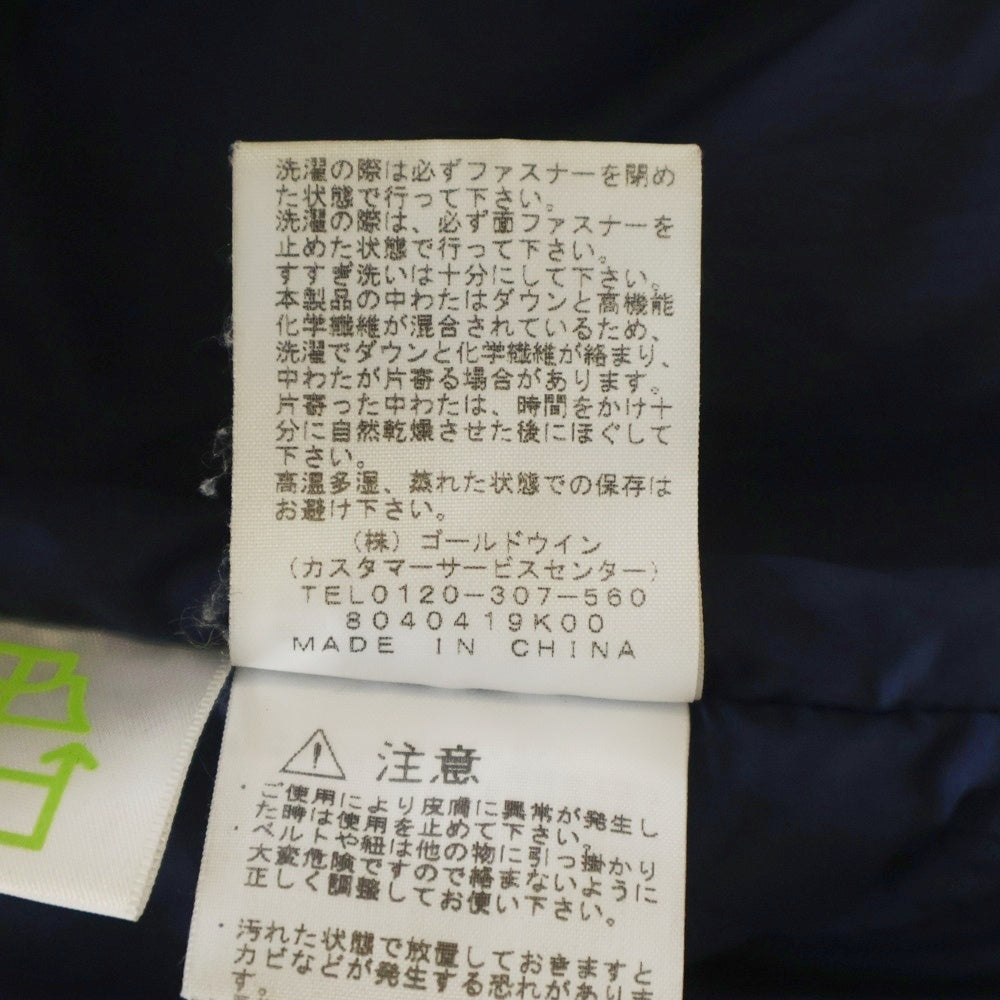 洗濯の際は必ずファスナーを閉め
た状態で行って下さい。
洗濯の際は、必ず面ファスナーを
止めた状態で行って下さい。
すすぎ洗いは十分にして下さい。
本製品の中わたはダウンと高機能
化学繊維が混合されているため、
洗濯でダウンと化学繊維が絡まり、
中わたが片寄る場合があります。
片寄った中わたは、時間をかけ十
分に自然乾燥させた後にほぐして
下さい。
高温多湿、蒸れた状態での保存は
お避け下さい。
（株）ゴールドウイン
（カスタマーサービスセンター）
TEL0120−307−560
8040419K00
MADE IN CHINA
注意
・ご使用により皮膚に異常が発生し
た時は使用を止めて下さい。
・ベルトや紐は他の物に引っ掛かり
大変危険ですので絡まないように
正しく調整してお使い下さい。
・汚れた状態で放置しておきますと
カビなどが発生する恐れがありま
す。